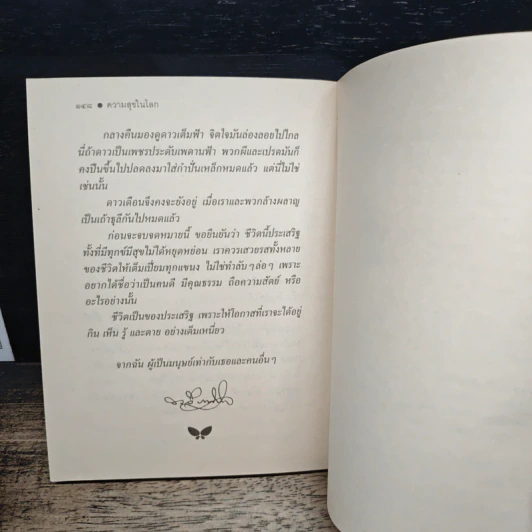 ๑๔๘ ● ความสุขในโลก
กลางคืนมองดูดาวเต็มฟ้า จิตใจมันล่องลอยไปไกล
นี่ถ้าดาวเป็นเพชรประดับเพดานฟ้า พวกผีและเปรตมันก็
คงปีนขึ้นไปปลดลงมาใส่กำปั่นเหล็กหมดแล้ว แต่นี่ไม่ใช่
เช่นนั้น
ดาวเดือนจึงคงจะยังอยู่ เมื่อเราและพวกล้างผลาญ
เป็นเถ้าธุลีกันไปหมดแล้ว
ก่อนจะจบจดหมายนี้ ขอยืนยันว่า ชีวิตนี้ประเสริฐ
ทั้งที่มีทุกข์มีสุขไม่ได้หยุดหย่อน เราควรเสวยรสทั้งหลาย
ของชีวิตให้เต็มเปี่ยมทุกแขนง ไม่ใช่กำลับๆล่อๆ เพราะ
อยากได้ชื่อว่าเป็นคนดี มีคุณธรรม ถือความสัตย์ หรือ
อะไรอย่างนั้น
ชีวิตเป็นของประเสริฐ เพราะให้โอกาสที่เราจะได้อยู่
กิน เห็น รู้ และตาย อย่างเต็มเหนี่ยว
จากฉัน ผู้เป็นมนุษย์เท่ากับเธอและคนอื่นๆ